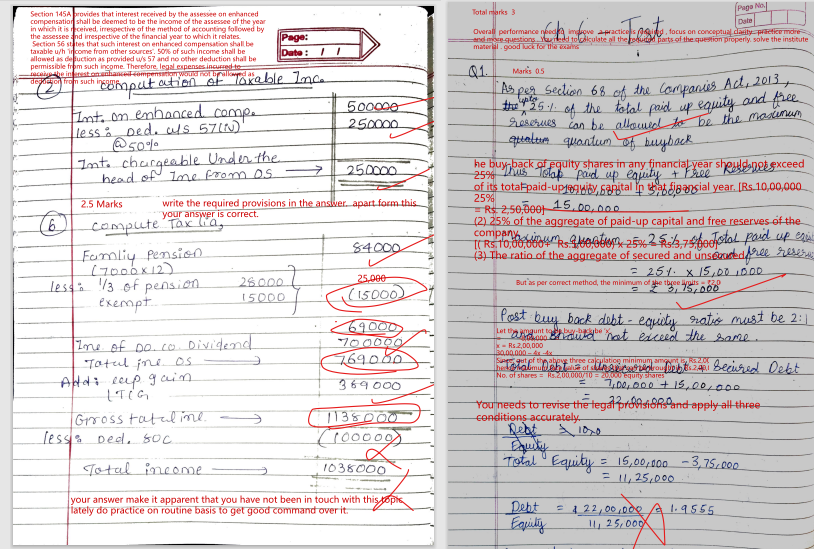 Section 145A provides that interest received by the assessee on enhanced
compensation shall be deemed to be the income of the assessee of the year
in which it is received, irrespective of the method of accounting followed by
the assessee and irrespective of the financial year to which it relates.
Section 56 states that such interest on enhanced compensation shall be
taxable u/h 'Income from other sources'. 50% of such income shall be
allowed as deduction as provided u/s 57 and no other deduction shall be
permissible from such income. Therefore, legal expenses incurred to
receive the interest on enhanced compensation would not be allowed as
deduction from such income.
Page:
Date: / /
(2) computation of Taxable Inc.
Int. on enhanced comp. 500000
less: Ded. u/s 57(iv) 250000
@50%
Int. chargeable Under the
head of Inc. from O.S → 250000
2.5 Marks
write the required provisions in the answer. apart form this
your answer is correct.
(6) compute Tax lia.
Family Pension 84000
(7000x12)
25,000
less: 1/3 of pension 28000 (15000)
exempt. 15000
69000
Inc. of Do. co. Dividend 700000
Total inc. OS → 769000
Add: cap gain 369000
LTCG
Gross total inc → 1138000
less: Ded. 80C (100000)
Total income → 1038000
your answer make it apparent that you have not been in touch with this topic
lately do practice on routine basis to get good command over it.
Page No.
Date
Total marks 3
Test
Overall performance need improve practice is required , focus on conceptual clarity practice more
and more questions . You need to calculate all the required parts of the question properly. solve the institute
material . good luck for the exams
Q1. Marks 0.5
As per section 68 of the Companies Act, 2013,
the upto 25% of the total paid up equity and free
reserves can be allowed to be the maximum
quantum of buyback
he buy-back of equity shares in any financial year should not exceed
Thus Total paid up equity + Free Reserves
25%
of its total paid-up equity capital in that financial year. [Rs.10,00,000
= 10,00,000 + 5,00,000
25%
= 15,00,000
= Rs. 2,50,000]
(2) 25% of the aggregate of paid-up capital and free reserves of the
company
Maximum quantum = 25% of Total paid up equi
[( Rs.10,00,000+ Rs.5,00,000) x 25% = Rs.3,75,000]
and free reserves
(3) The ratio of the aggregate of secured and unsecured
= 25% x 15,00,000
But as per correct method, the minimum of the three limits =
= ₹ 3,75,000
Post buy back debt - equity ratio must be 2:1
and should not exceed the same.
Let the amount to be buy-back be 'x'
x = Rs.2,00,000
30,00,000 – 4x -4x
Total Debt = unsecured Debt + Secured Debt
No. of shares = Rs.2,00,000/10 = 20,000 equity shares
= 7,00,000 + 15,00,000
= 22,00,000
You needs to revise the legal provisions and apply all three
conditions accurately.
Debt
Equity
Total Equity = 15,00,000 - 3,75,000
= 11,25,000
Debt = 22,00,000 = 1.9555
Equity 11,25,000